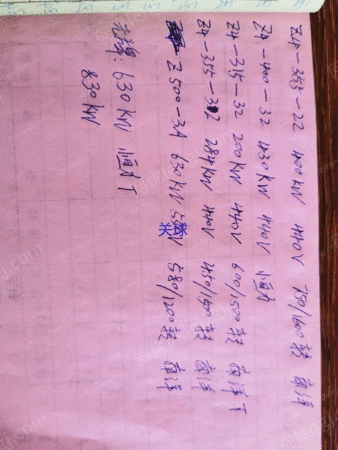 Z4-355-22 400kW 440V 750/1600转 南洋
Z4-400-32 430kW 440V 恒力
Z4-315-32 200kW 440V 600/1500转 南洋
Z4-355-32 284kW 440V 450/1500转 南洋
Z500-3A 630kW 580/1200转 南洋
630kW 恒力
830kW